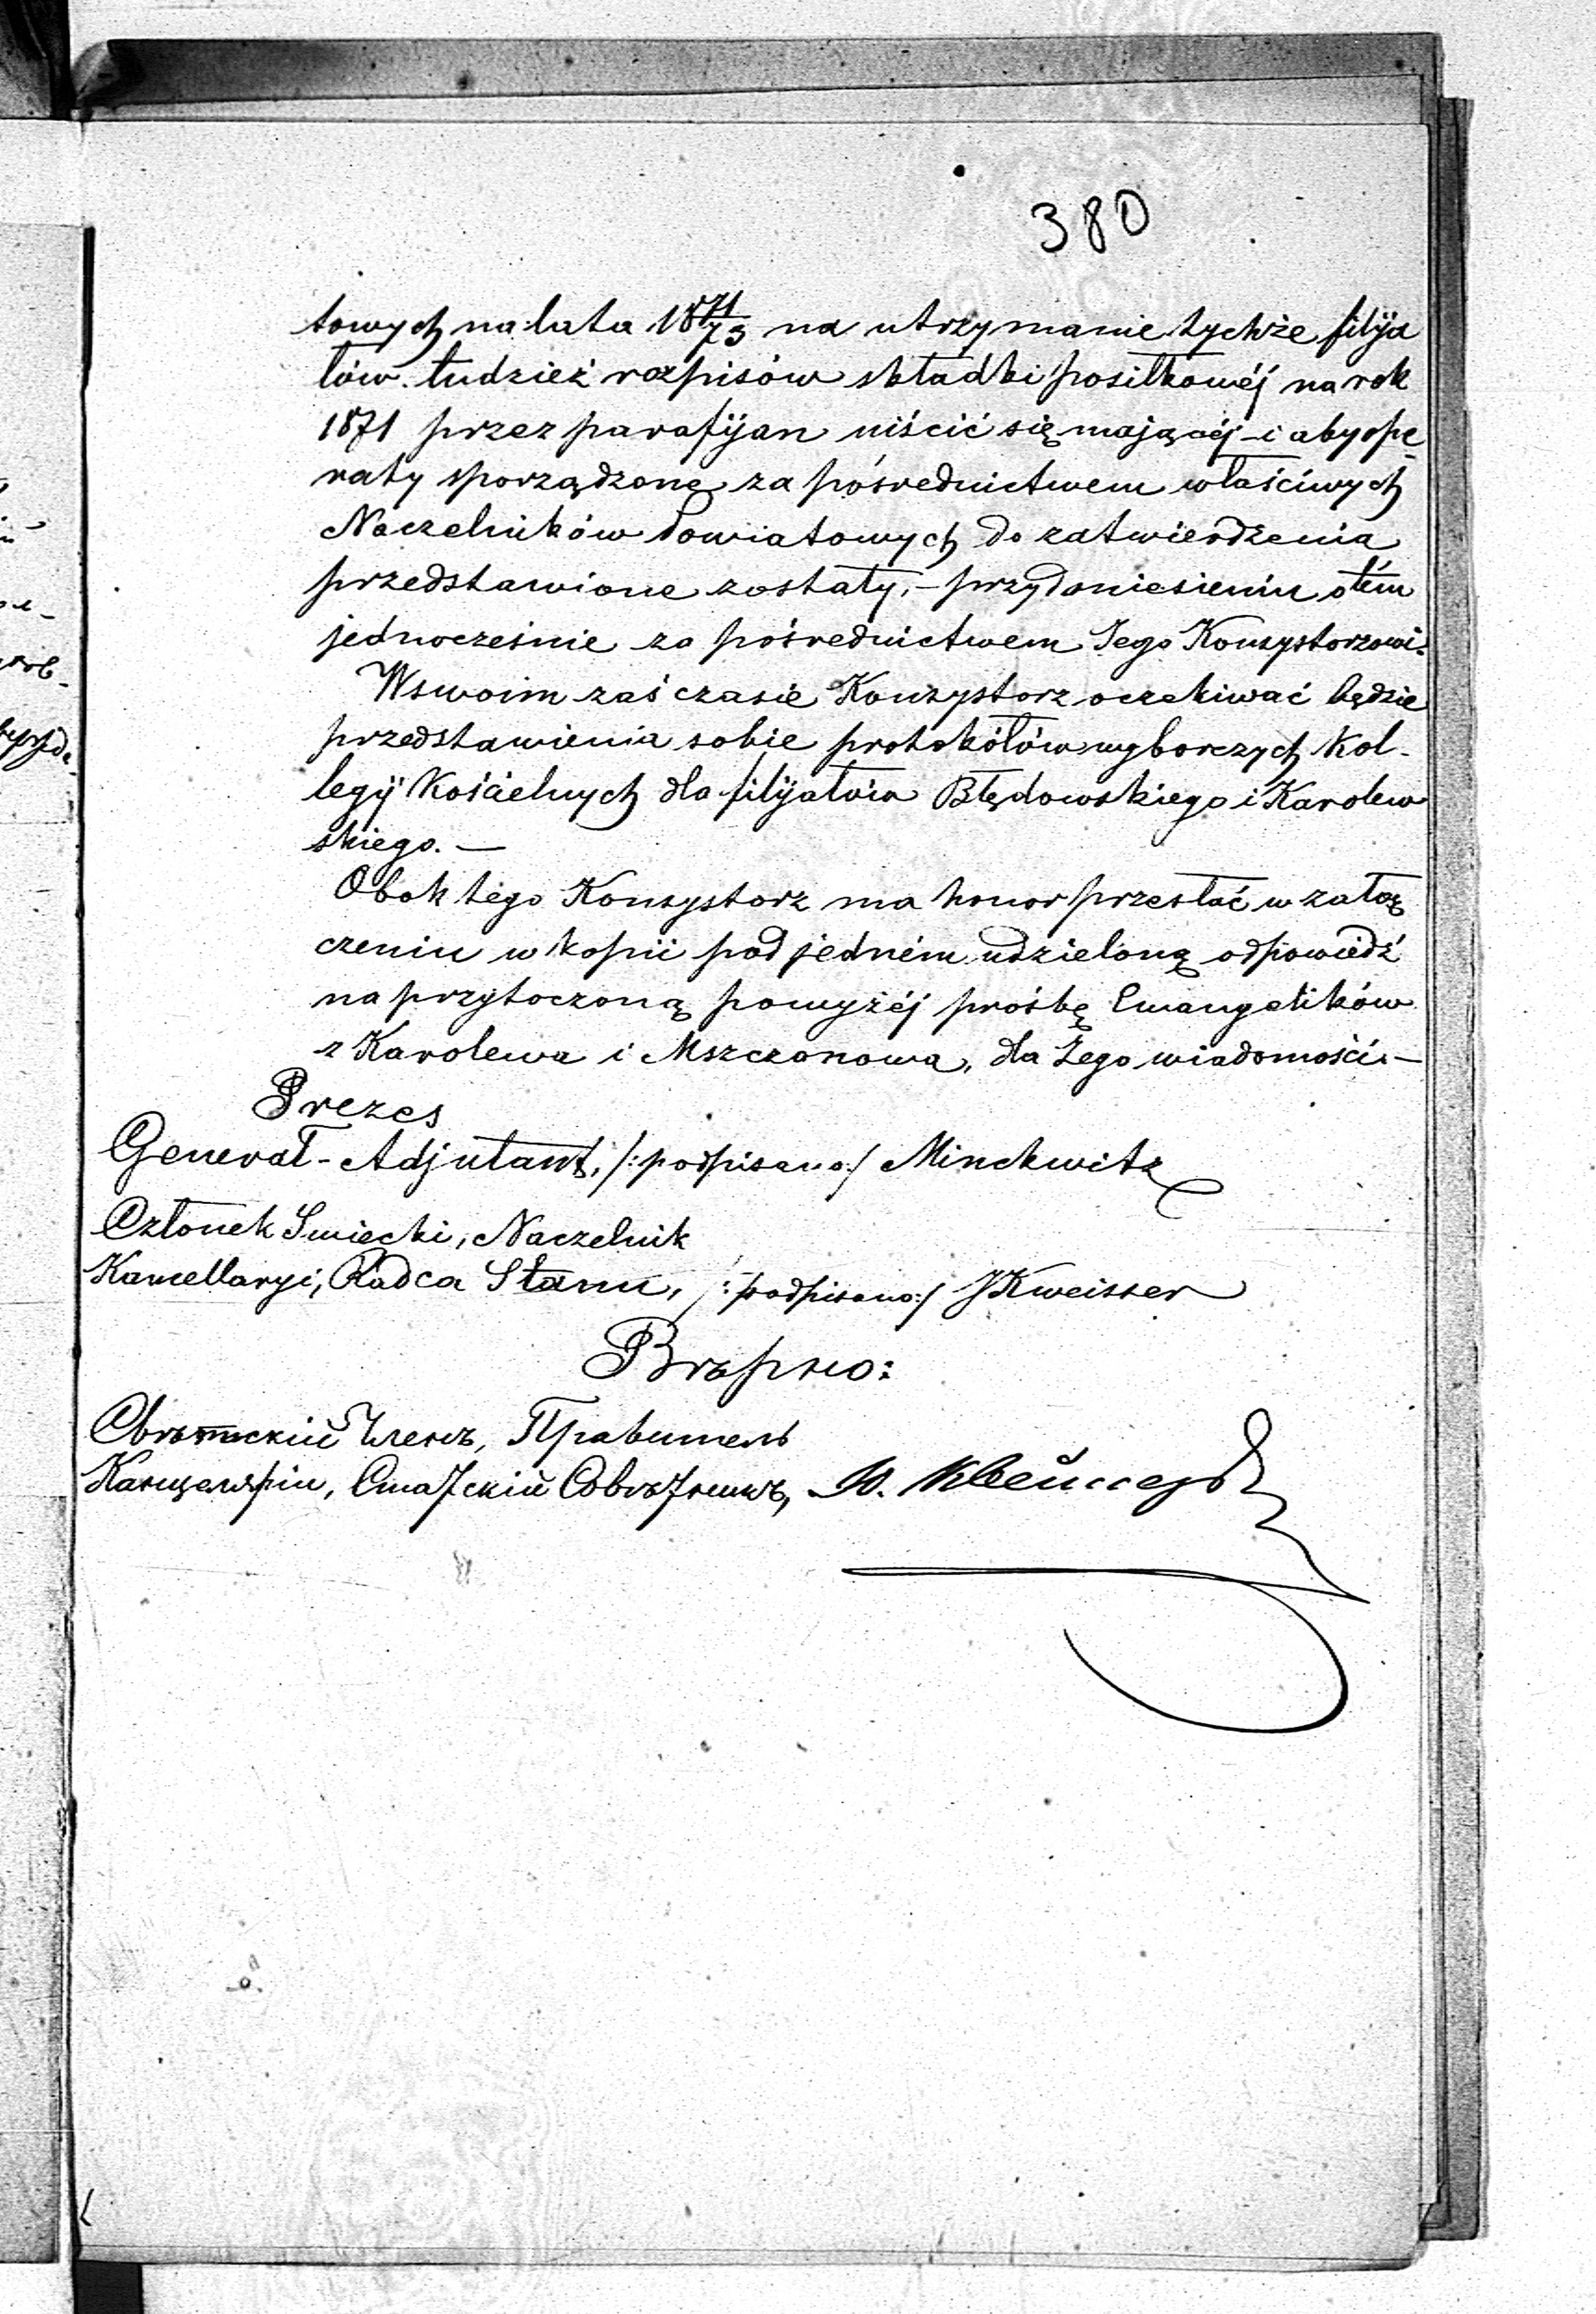 380
towych na lata 18 71/73 na utrzymanie tychże filija
łów. tudzież rozpisów składki posiłkowéj na rok
1871 przez parafijan uiścić się mającéj – i aby ope
raty sporządzone za pośrednictwem właściwych
Naczelników Powiatowych do zatwierdzenia
przedstawione zostały, – przy doniesieniu o tém
jednocześnie za pośrednictwem Jego Konsystorzowi.
W swoim zaś czasie Konsystorz oczekiwać będzie
przedstawienia sobie protokółów wyborczych Kol-
legij Kościelnych dla filijałów Błędowskiego i Karolew
skiego. —
Obok tego Konsystorz ma honor przesłać w załą
czeniu w kopii pod jedném udzieloną odpowiedź
na przytoczoną powyżéj prośbę Ewangelików
z Karolewa i Mszczonowa, dla Jego wiadomości. —
Prezes
Generał-Adjutant, /:podpisano:/ Minckwitz
Członek Swiecki, Naczelnik
Kancellaryi, Radca Stanu, /:podpisano:/ J Kweisser
Вѣрно:
Свѣтскій Членъ, Правитель
Канцеляріи, Статскій Совѣтникъ, Ю. Квейссеръ